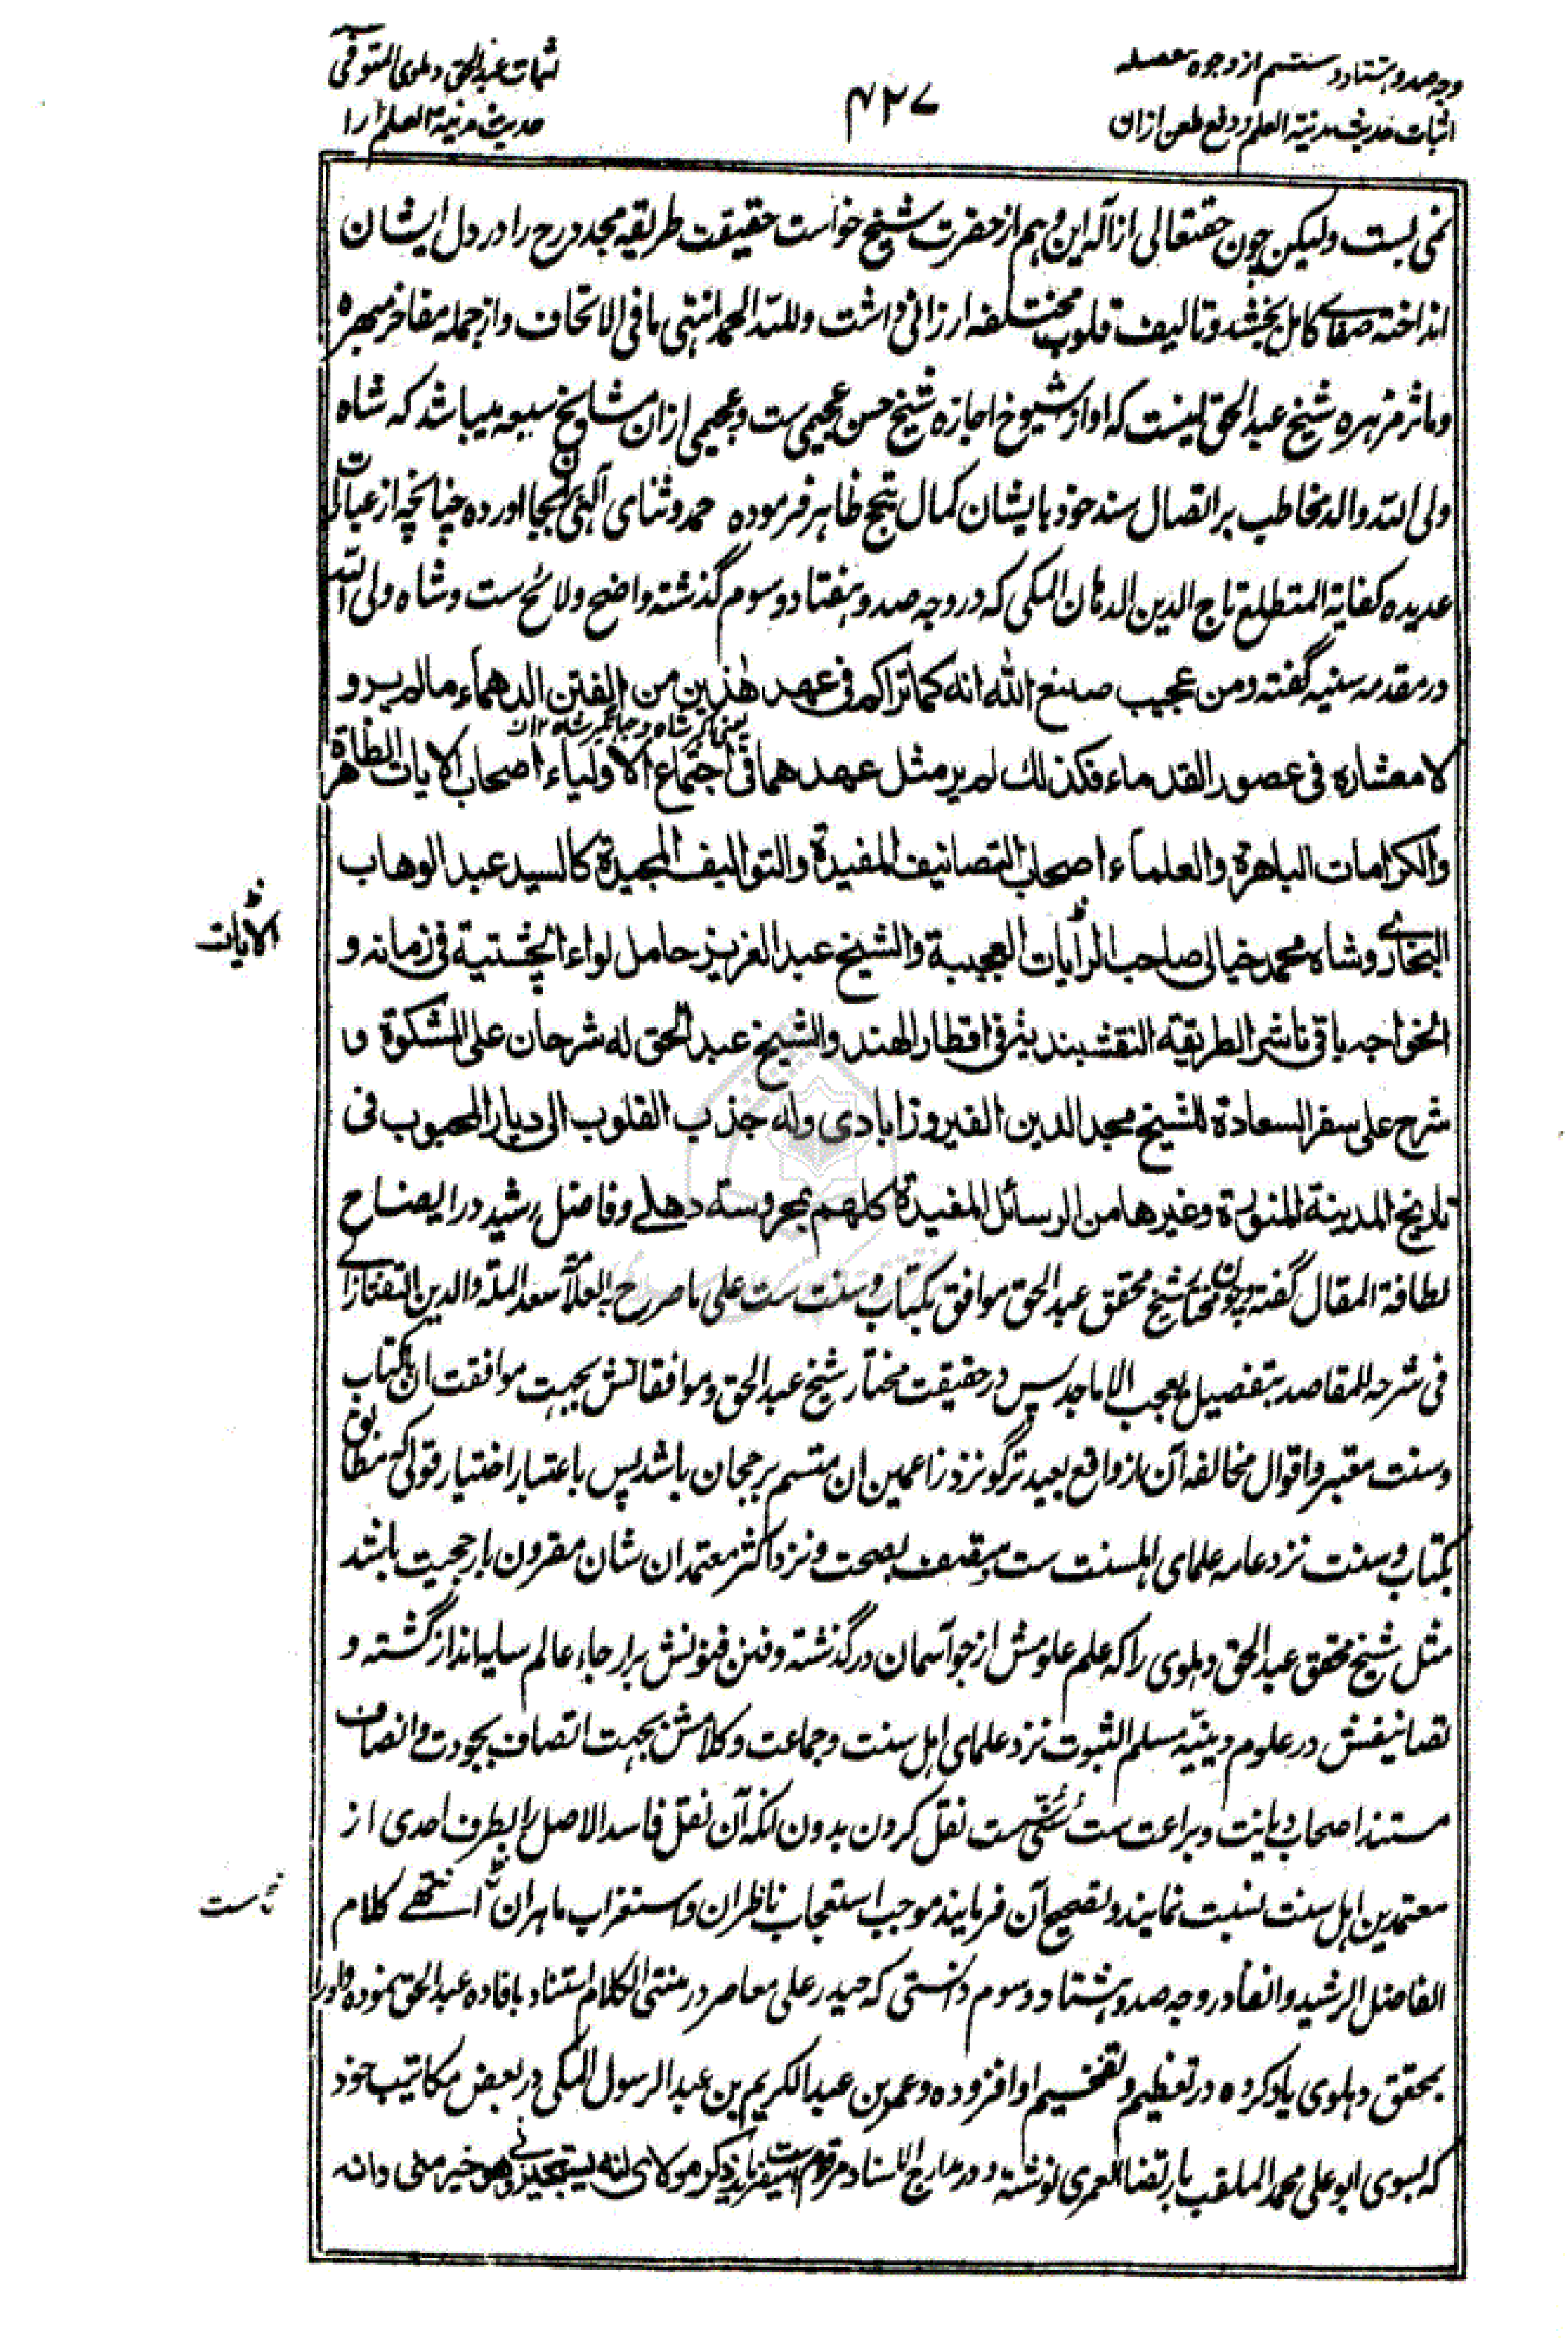 وجه صد و هشتاد و ششم از وجوه مفصله
اثبات حدیث مدینة العلم و دفع طعن ازان
۴۲۷
اثبات عبد الحق دهلوی المتوفی
حدیث مدینة العلم را
نمی بست ولیکن چون حقتعالی ازاله این وهم از حضرت شیخ خواست حقیقت طریقه مجدد رح را در دل ایشان
انداخته صفای کامل بخشد و تالیف قلوب مختلفه ارزانی داشت وللّه الحمد انتهی ما فی الاتحاف و از جمله مفاخر مبهره
و ماثر مزهره شیخ عبد الحق اینست که او از شیوخ اجازه شیخ حسن عجیمی ست و عجیمی ازان مشایخ سبعه میباشد که شاه
ولی اللّه والد مخاطب بر اتصال سند خود بایشان کمال تبجح ظاهر فرموده حمد و ثنای الهی بران بجا اورده چنانچه از عبارات
عدیده کفایة المتطلع تاج الدین الدهان المکی که در وجه صد و هفتاد و سوم گذشته واضح ولائح ست و شاه ولی اللّه
در مقدمه سنیه گفته ومن عجیب صنع الله انه کما تراکم فی عهد هٰذین من الفتن الدهماء ما لم یر و
یعنی اکبر شاه و جهانگیر شاه ۱۲
لا معشاره فی عصور القدماء فکذلك لم یر مثل عهدهما فی اجتماع الاولیاء اصحاب الایات الظاهرة
والکرامات الباهرة والعلماء اصحاب التصانیف المفیدة والتوالیف المجیدة کالسید عبد الوهاب
البخاری و شاه محمد خیالی صاحب الرایات العجیبة والشیخ عبد العزیز حامل لواء الچشتیة فی زمانه و
الایات
الخواجه باقی ناشر الطریقة النقشبندیة فی اقطار الهند والشیخ عبد الحق له شرحان علی المشکوة و
شرح علی سفر السعادة للشیخ مجد الدین الفیروزابادی وله جذب القلوب الی دیار المحبوب فی
تاریخ المدینة المنورة وغیرها من الرسائل المفیدة کلهم بمحروسة دهلی و فاضل رشید در ایضاح
لطافة المقال گفته و چون مختار شیخ محقق عبد الحق موافق بکتاب و سنت ست علی ما صرح به العلامة سعد الملة والدین التفتازانی
فی شرحه للمقاصد بتفصیل یعجب الاماجد پس در حقیقت مختار شیخ عبد الحق و موافقانش بجهت موافقت ان بکتاب
و سنت معتبر و اقوال مخالفه آن از واقع بعید تر گو نزد زاعمین ان متسم برجحان باشد پس باعتبار اختیار قولی که مطابق
بکتاب و سنت نزد عامه علمای اهلسنت ست و متصف بصحت و نزد اکثر معتمدان شان مقرون بارجحیت باشد
مثل شیخ محقق عبد الحق دهلوی را که علم علومش از جو آسمان در گذشته و فنن فنونش بر ارجاء عالم سایه انداز گشته و
تصانیفش در علوم دینیه مسلم الثبوت نزد علمای اهل سنت و جماعت و کلامش بجهت اتصاف بجودت و انصاف
مستند اصحاب دیانت و براعت ست نقل کردن بدون انکه آن نقل فاسد الاصل را بطرف احدی از
معتمدین اهل سنت نسبت نمایند و تصحیح آن فرمایند موجب استعجاب ناظران و استغراب ماهران انتهی کلام
ست
الفاضل الرشید وانفا در وجه صد و هشتاد و سوم دانستی که حیدر علی معاصر در منتهی الکلام استناد بافاده عبد الحق نموده و او را
بمحقق دهلوی یاد کرده در تعظیم و تفخیم او افزوده و عمر بن عبد الکریم بن عبد الرسول المکی در بعض مکاتیب خود
که بسوی ابو علی محمد الملقب بارتضا العمری نوشته و در مدارج الاسناد مرقوم ست میفرماید ذکر مولای انه یستجیزنی وهو خیر منی وانه